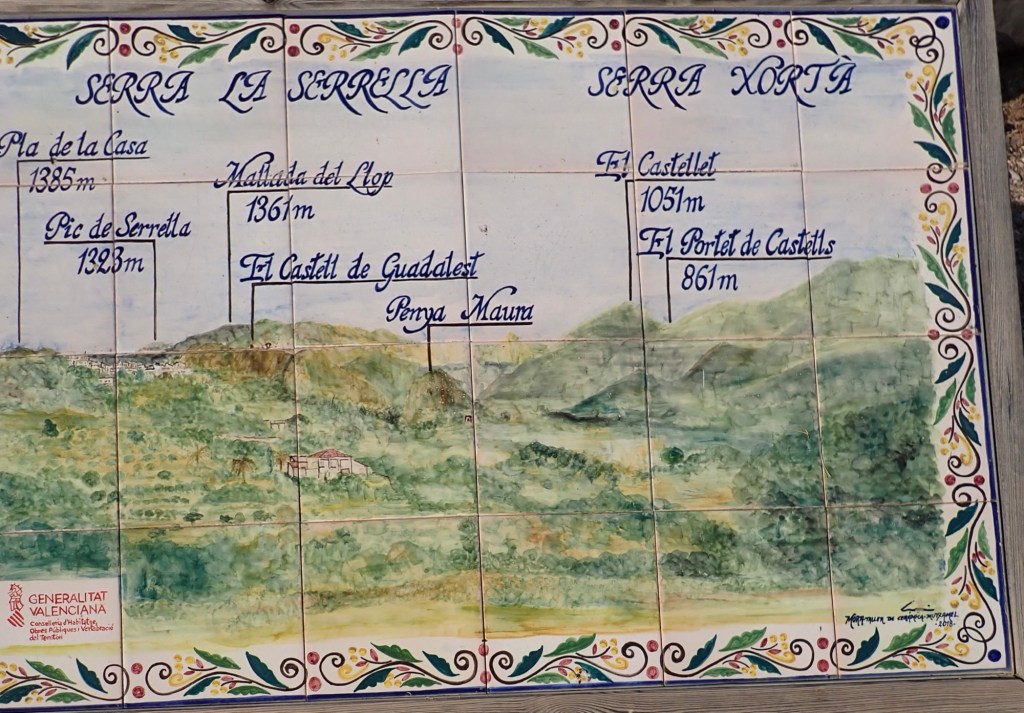 SERRA LA SERRELLA
SERRA XORTÀ
Pla de la Casa
1385m
Mallada del Llop
1361m
El Castellet
1051m
Pic de Serrella
1323m
El Castell de Guadalest
El Portet de Castells
861m
Penya Maura
GENERALITAT
VALENCIANA
Conselleria d'Habitatge,
Obres Públiques i Vertebració
del Territori